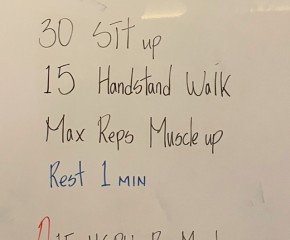 30 Sit up
15 Handstand Walk
Max Reps Muscle up
Rest 1 MIN